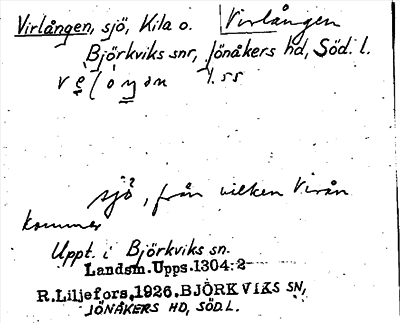 Virlången, sjö, Kila o. Virlången
Björkviks snr, Jönåkers hd, Söd. l.
sjö, från vilken Virån
kommer
Uppt. i Björkviks sn.
Landsm.Upps.1304:2
R.Liljefors.1926.BJÖRKVIKS SN,
JÖNÅKERS HD, SÖD.L.